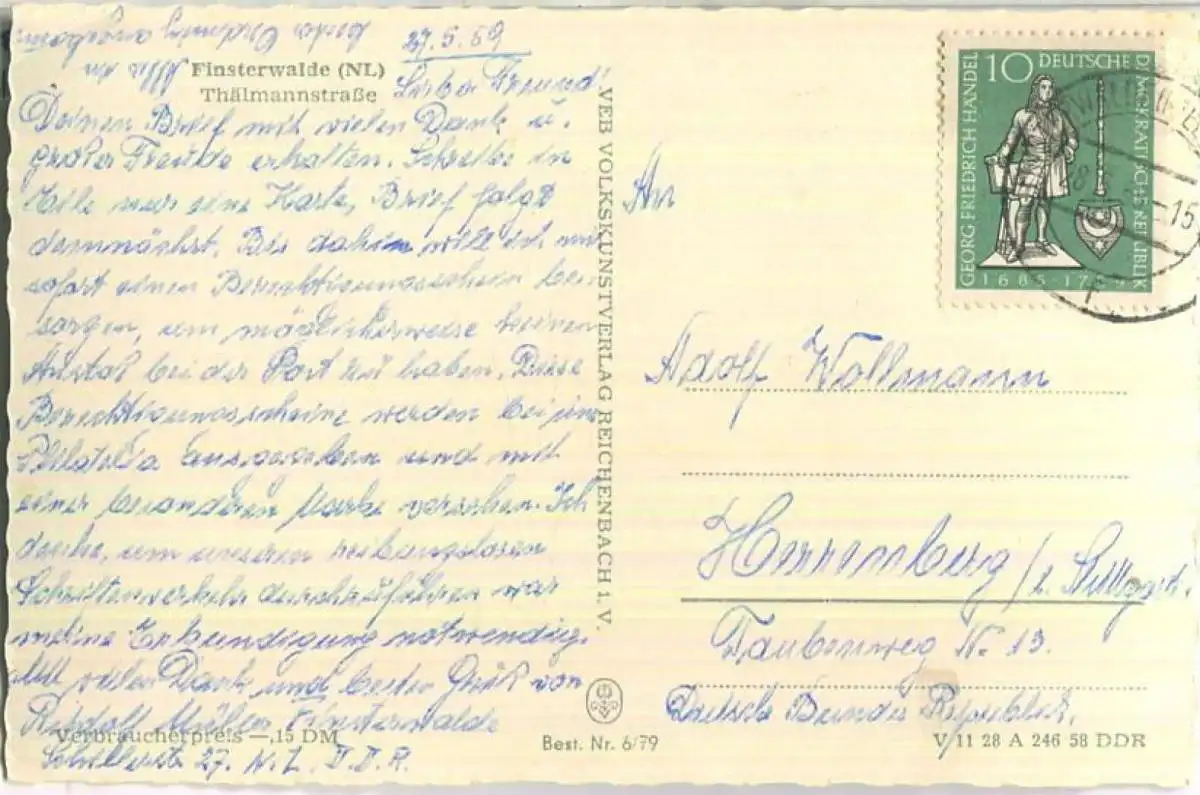 27.5.59
Finsterwalde (NL)
Thälmannstraße
Lieber Freund!
Deinen Brief mit vielen Dank u.
großer Freude erhalten. Schreibe in
Eile nur eine Karte, Brief folgt
demnächst. Bis dahin will ich mir
sofort einen Berechtigungsschein be-
sorgen, um möglicherweise keinen
Anstoß bei der Post zu haben. Diese
Berechtigungsscheine werden bei uns
Philatelia ausgegeben und mit
einer besonderen Marke versehen. Ich
denke, um unseren reibungslosen
Schriftenverkehr durchzuführen war
meine Erkundigung notwendig.
vielen Dank und bester Gruß von
Rudolf Müller, Finsterwalde
Verbraucherpreis —,15 DM
Schillerstr. 27. N. L. D. D. R.
VEB VOLKSKUNSTVERLAG REICHENBACH I. V.
Best. Nr. 6/79
GEORG FRIEDRICH HÄNDEL
10 DEUTSCHE
DEMOKRATISCHE REPUBLIK
1685 1759
An
Adolf Wollmann
Herrenberg / b. Stuttgart.
Taubenweg Nr. 13.
Deutsche Bundes Republik.
V/11 28 A 246 58 DDR